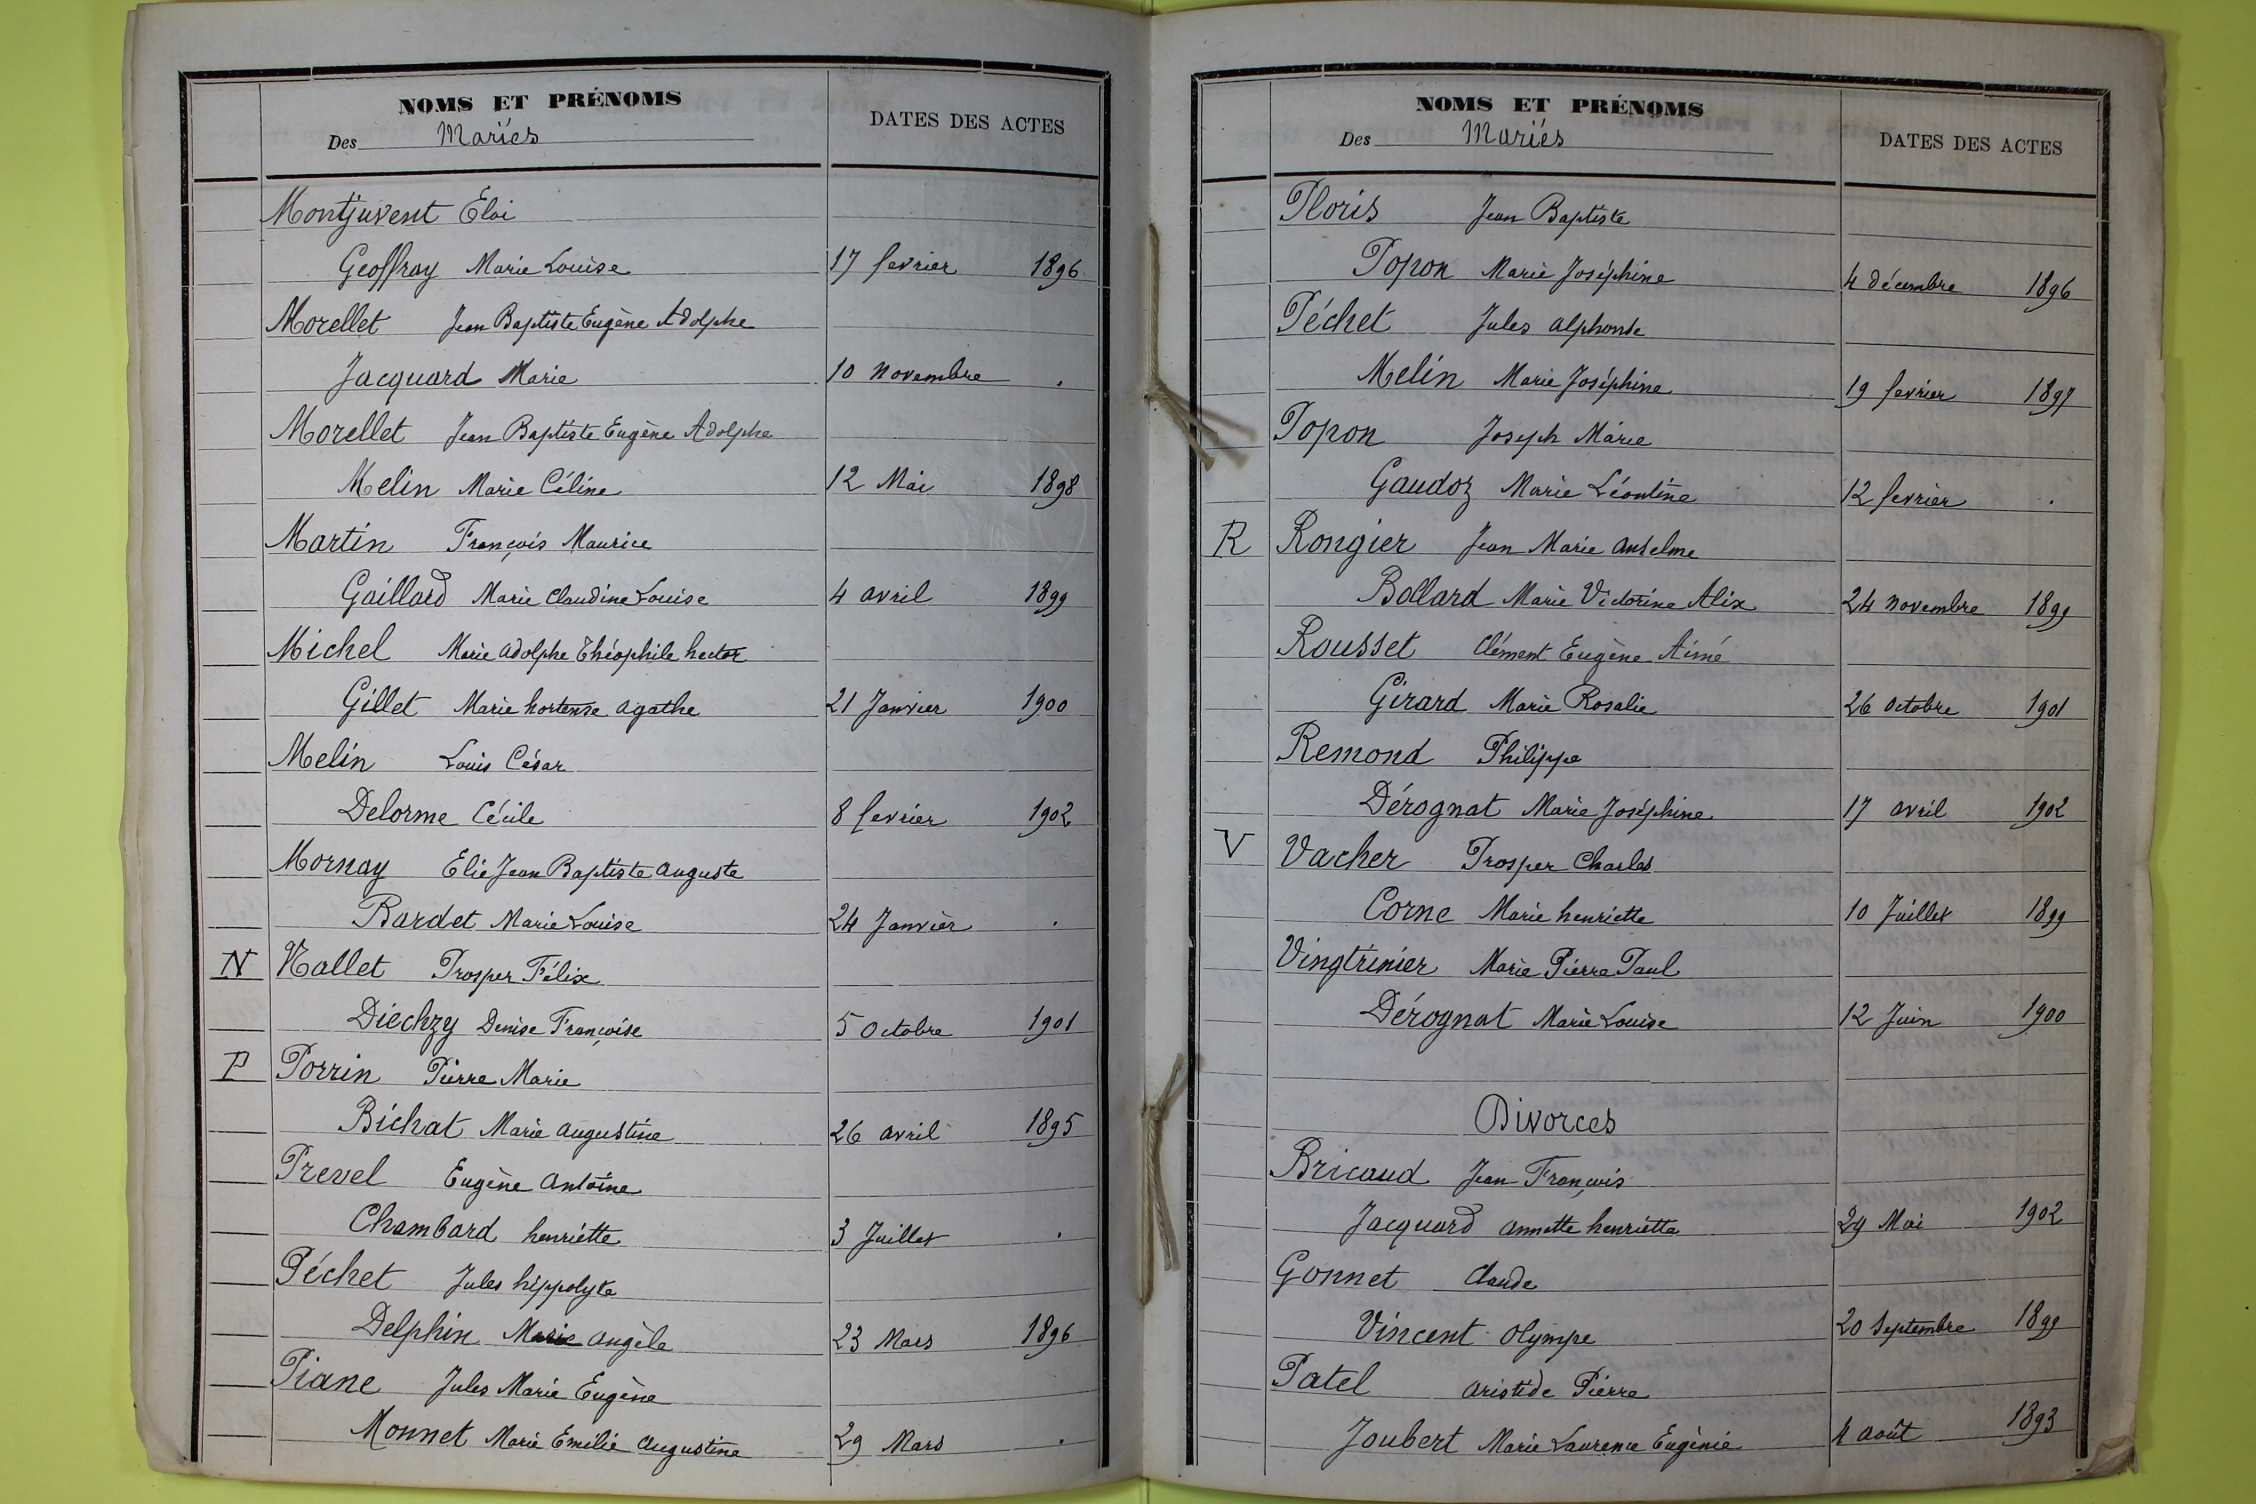 NOMS ET PRÉNOMS
Des Mariés
DATES DES ACTES
Montjuvent Eloi
Geoffray Marie Louise 17 fevrier 1896
Morellet Jean Baptiste Eugène Adolphe
Jacquard Marie 10 Novembre .
Morellet Jean Baptiste Eugène Adolphe
Melin Marie Céline 12 Mai 1898
Martin François Maurice
Gaillard Marie Claudine Louise 4 avril 1899
Michel Marie Adolphe Théophile hector
Gillet Marie hortense agathe 21 Janvier 1900
Melin Louis César
Delorme Cécile 8 fevrier 1902
Mornay Elie Jean Baptiste Auguste
Bardet Marie Louise 24 Janvier .
N Nallet Prosper Félix
Diechzy Denise Françoise 5 Octobre 1901
P Porrin Pierre Marie
Bichat Marie Augustine 26 avril 1895
Prevel Eugène Antoine
Chambard henriette 3 Juillet .
Péchet Jules hippolyte
Delphin Marie Angèle 23 Mars 1896
Piane Jules Marie Eugène
Monnet Marie Emilie Augustine 29 Mars .
NOMS ET PRÉNOMS
Des Mariés
DATES DES ACTES
Ploris Jean Baptiste
Popon Marie Joséphine 4 décembre 1896
Péchet Jules Alphonse
Melin Marie Joséphine 19 fevrier 1897
Popon Joseph Marie
Gaudoz Marie Léontine 12 fevrier .
R Rongier Jean Marie Anselme
Bollard Marie Victorine Alix 24 novembre 1899
Rousset Clément Eugène Aimé
Girard Marie Rosalie 26 octobre 1901
Remond Philippe
Dérognat Marie Joséphine 17 avril 1902
V Vacher Prosper Charles
Corne Marie henriette 10 Juillet 1899
Vingtrinier Marie Pierre Paul
Dérognat Marie Louise 12 Juin 1900
Divorces
Bricaud Jean François
Jacquard Annette henriette 29 Mai 1902
Gonnet Claude
Vincent Olympe 20 Septembre 1899
Patel Aristide Pierre
Joubert Marie Laurence Eugénie 4 août 1893